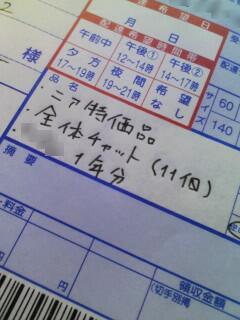 配達希望日
月 日
配達希望時間帯
午前中 午後① 12～14時 午後② 14～17時
夕方 17～19時 夜間 19～21時 希望なし
様
サイズ
60
140
品名
・ニア特価品
・全体チャット(11個)
1年分
摘要
料金
円 円
領収金額
(切手別掲